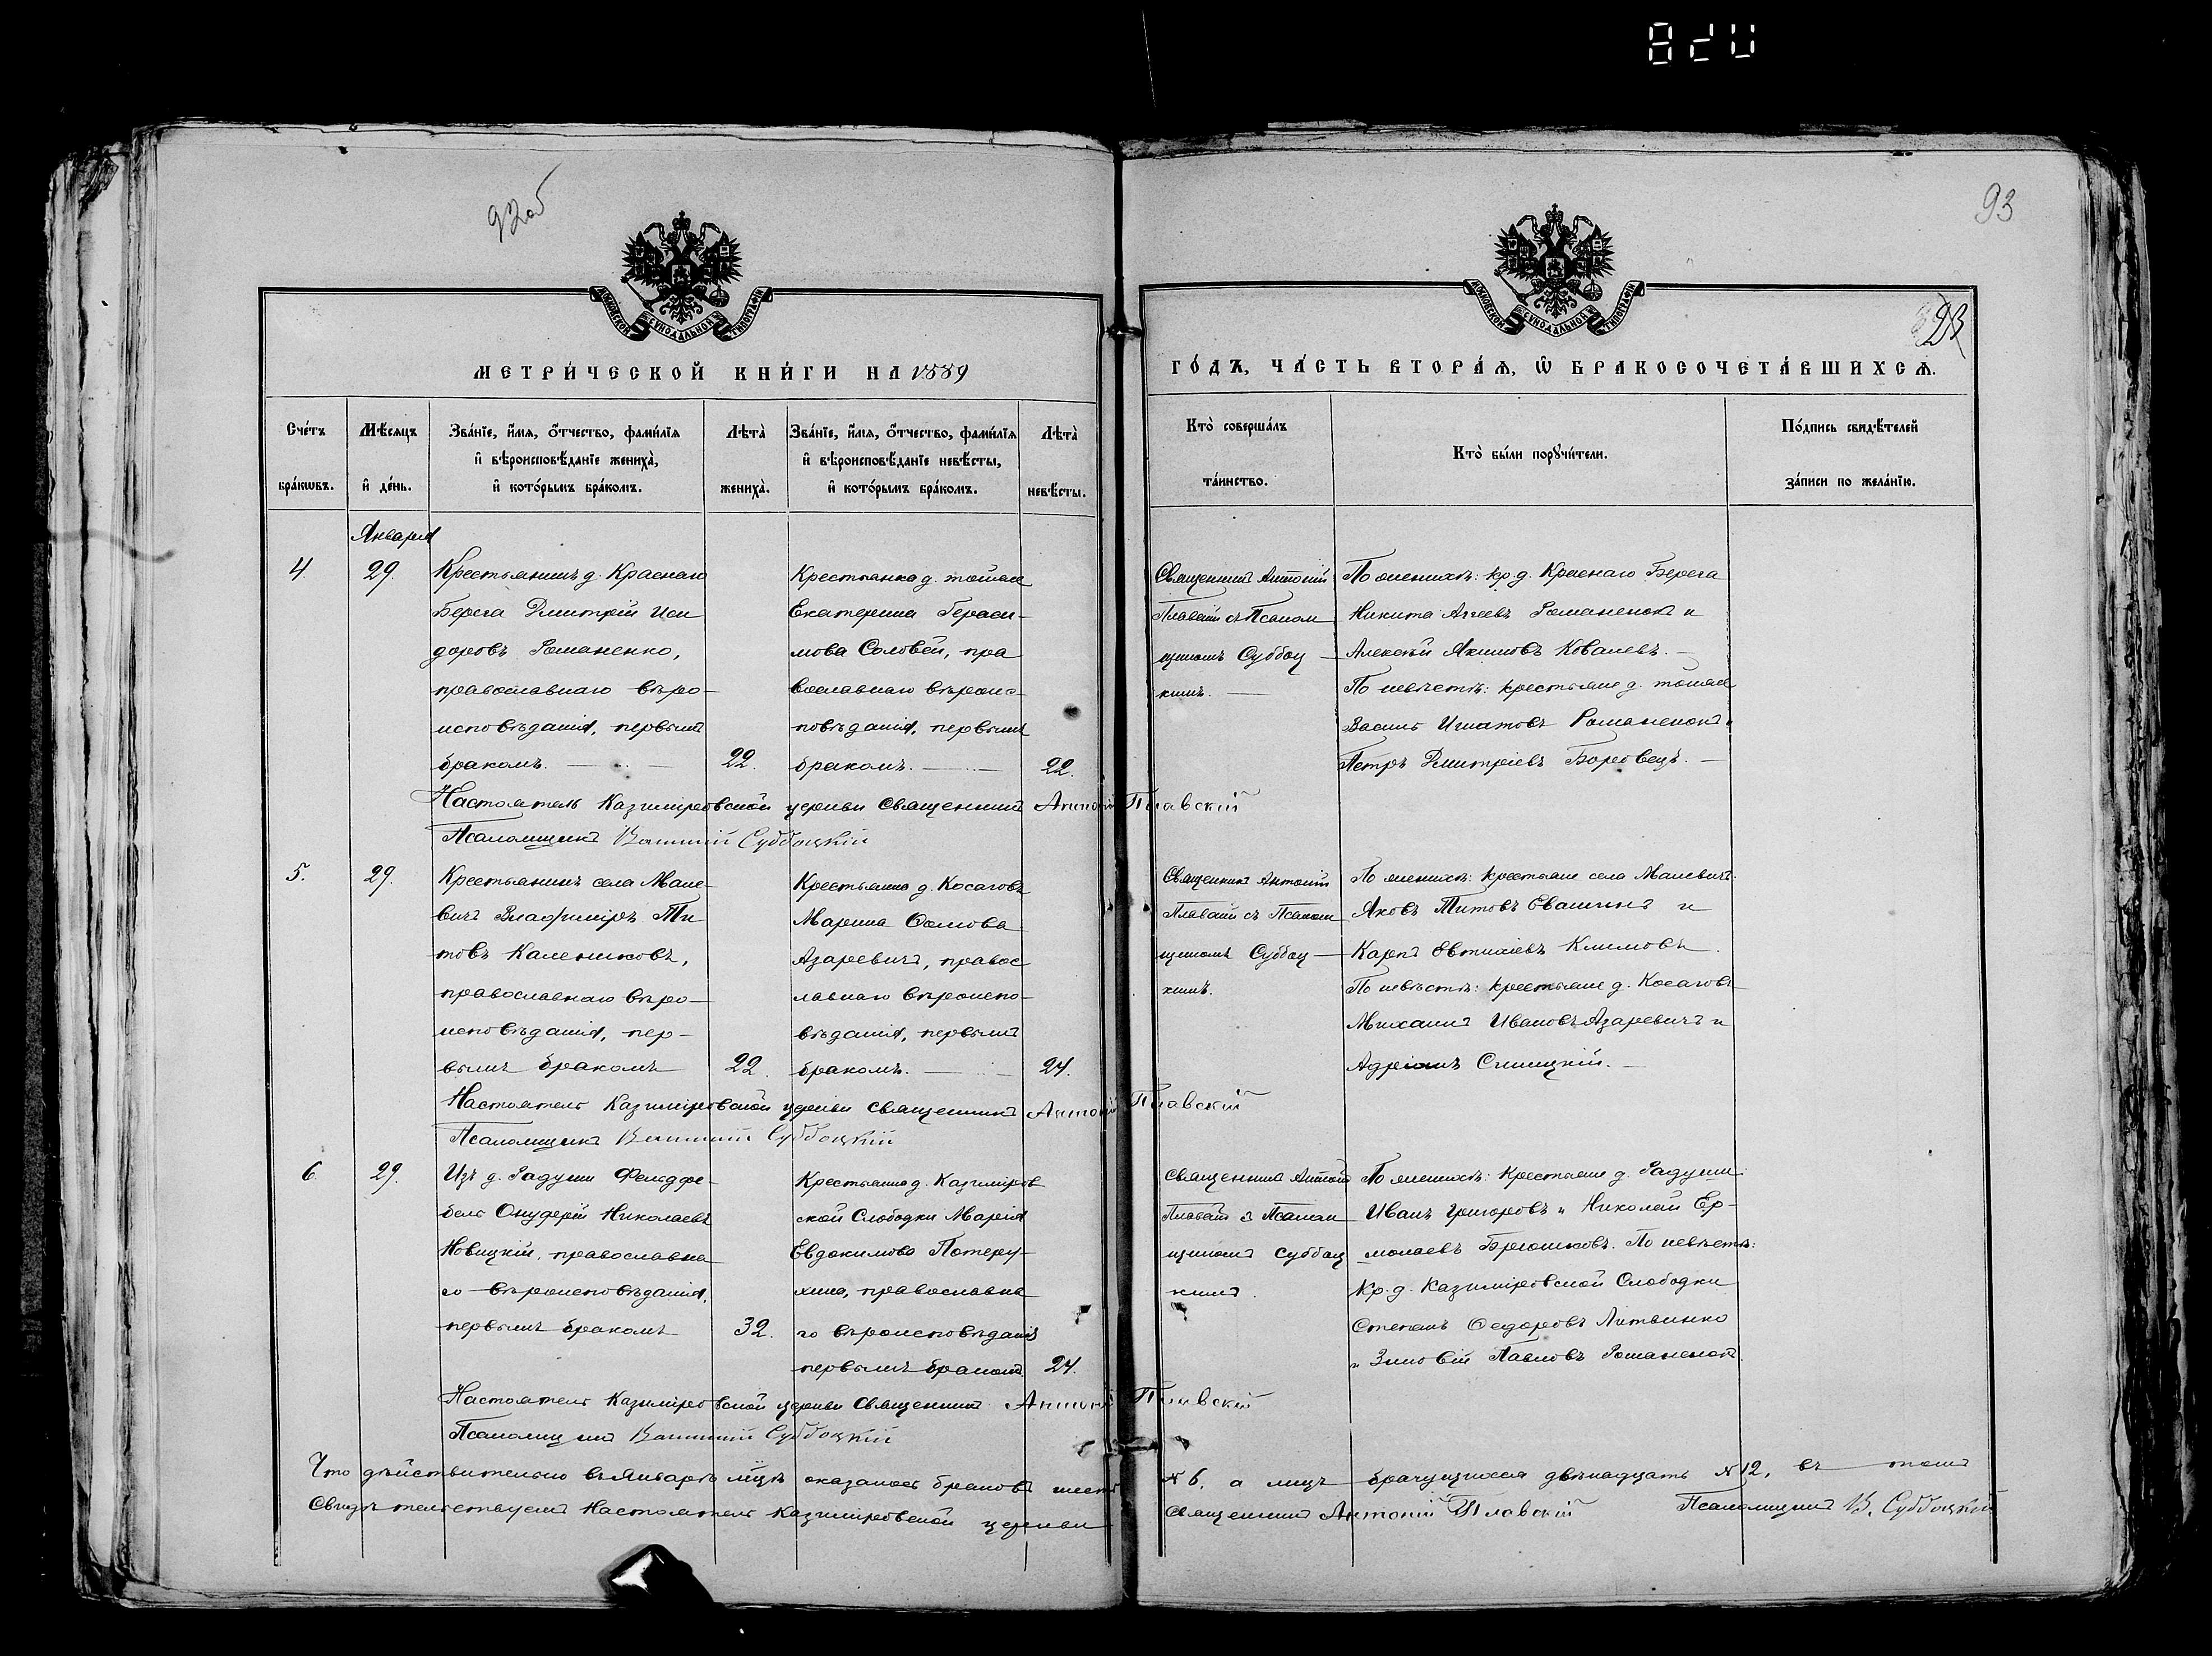 92об
93
МЕТРИ́ЧЕСКОЙ КНИ́ГИ НА 1889
ГО́ДЪ, ЧА́СТЬ ВТОРА́Ѧ, Ѽ БРАКОСОЧЕТА́ВШИХСѦ.
Сче́тъ бра́кѡвъ.
Мѣ́сяцъ и҆ де́нь.
Зва́нїе, и҆́мѧ, ѻ҆́тчество, фами́лїѧ
и҆ вѣроисповѣ́данїе жениха̀,
и҆ кото́рымъ бра́комъ.
Лѣта̀ жениха̀.
Зва́нїе, и҆́мѧ, ѻ҆́тчество, фами́лїѧ
и҆ вѣроисповѣ́данїе невѣ́сты,
и҆ кото́рымъ бра́комъ.
Лѣта̀ невѣ́сты.
Кто̀ соверша́лъ
та́инство.
Кто̀ бы́ли порꙋчи́тели.
По́дпись свидѣ́телей
за́писи по жела́нїю.
Января
4. 29.
Крестьянинъ д. Краснаго
Берега Дмитрій Иси
доровъ Романенко,
православнаго вѣро-
исповѣданія, первымъ
бракомъ. 22.
Крестьянка д. тойже
Екатерина Гераси-
мова Соловей, пра
вославнаго вѣроис-
повѣданія, первымъ
бракомъ. 22.
Священникъ Антоній
Плавскій съ Псалом
щикомъ Суббоц
кимъ.
По женихѣ: кр. д. Краснаго Берега
Никита Агеевъ Романенокъ и
Алексѣй Якимовъ Ковалевъ.
По невѣстѣ: крестьяне д. тойже
Василь Игнатовъ Романенокъ и
Петръ Дмитріевъ Боровецъ.
Настоятель Казиміровской церкви священникъ Антоній Плавскій
Псаломщикъ Суббоцкій
5. 29.
Крестьянинъ села Мале-
вичъ Владиміръ Ти
товъ Калениковъ,
православнаго вѣро-
исповѣданія, пер-
вымъ бракомъ 22.
Крестьянка д. Косаговъ
Марина Ѳомова
Азаревичъ, правос
лавнаго вѣроиспо-
вѣданія, первымъ
бракомъ. 24.
Священникъ Антоній
Плавскій съ Псалом
щикомъ Суббоц
кимъ.
По женихѣ: крестьяне села Малевичъ
Яковъ Титовъ и
Карпъ Евтихіевъ Климовъ.
По невѣстѣ: крестьяне д. Косаговъ
Михаилъ Ивановъ Азаревичъ и
Адріанъ Синицкій.
Настоятель Казиміровской церкви священникъ Антоній Плавскій
Псаломщикъ Суббоцкій
6. 29.
Изъ д. Радуши Фельдфе-
бель Онуфрій Николаевъ
Новицкій, православна
го вѣроисповѣданія,
первымъ бракомъ 32.
Крестьянка д. Казиміров
ской Слободки Марія
Евдокимова Потеру-
хина, православна
го вѣроисповѣданія
первымъ бракомъ 24.
Священникъ Антоній
Плавскій съ Псалом
щикомъ Суббоц
кимъ.
По женихѣ: крестьяне д. Радуши
Иванъ Григоровъ и Николай Ер-
молаевъ Брюшковъ. По невѣстѣ:
Кр. д. Казиміровской Слободки
Степанъ Ѳедоровъ Литвинко
и Зиновій Павловъ Романенокъ.
Настоятель Казиміровской церкви священникъ Антоній Плавскій
Псаломщикъ Суббоцкій
Что дѣйствительно въ Январѣ м-цѣ оказалось браковъ шесть № 6, а лицъ брачущихся двѣнадцать № 12, въ томъ
Свидѣтельствуемъ Настоятель Казиміровской церкви священникъ Антоній Плавскій Псаломщикъ В. Суббоцкій